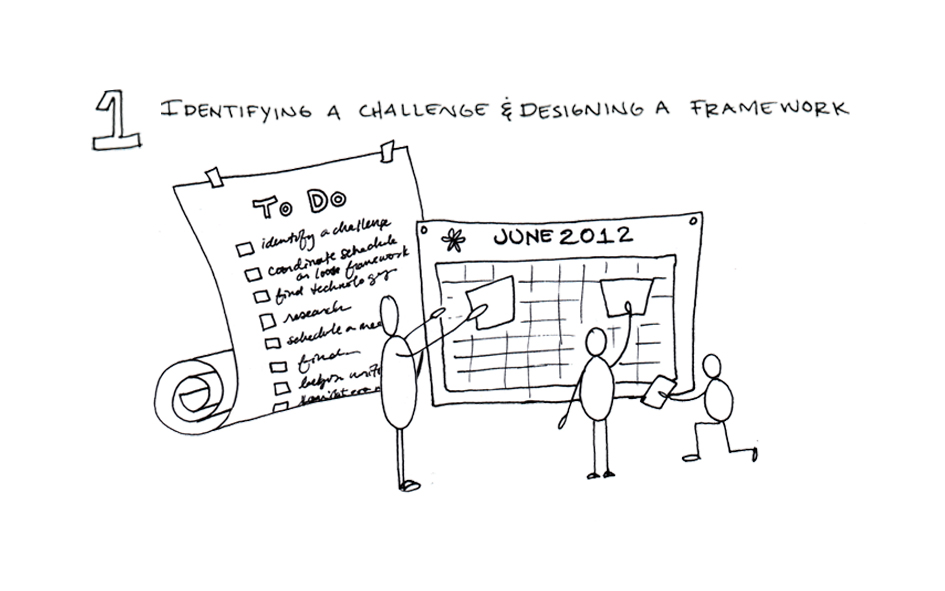 1 IDENTIFYING A CHALLENGE & DESIGNING A FRAMEWORK
To Do
identify a challenge
coordinate schedule
on loose framework
find technology
research
schedule a
find
begin
JUNE 2012